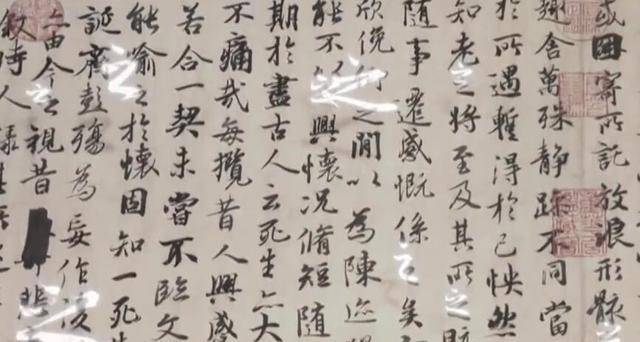 或因寄所託放浪形骸
趣舍萬殊靜躁不同當
於所遇暫得於己怏然
知老之將至及其所之既
隨事遷感慨係之矣
欣俛仰之閒以為陳迹
能不以之興懷況脩短隨
期於盡古人云死生亦大
不痛哉每攬昔人興感
若合一契未嘗不臨文
能喻之於懷固知一死生
誕齊彭殤為妄作後
由今之視昔悲
敘時人錄其所述